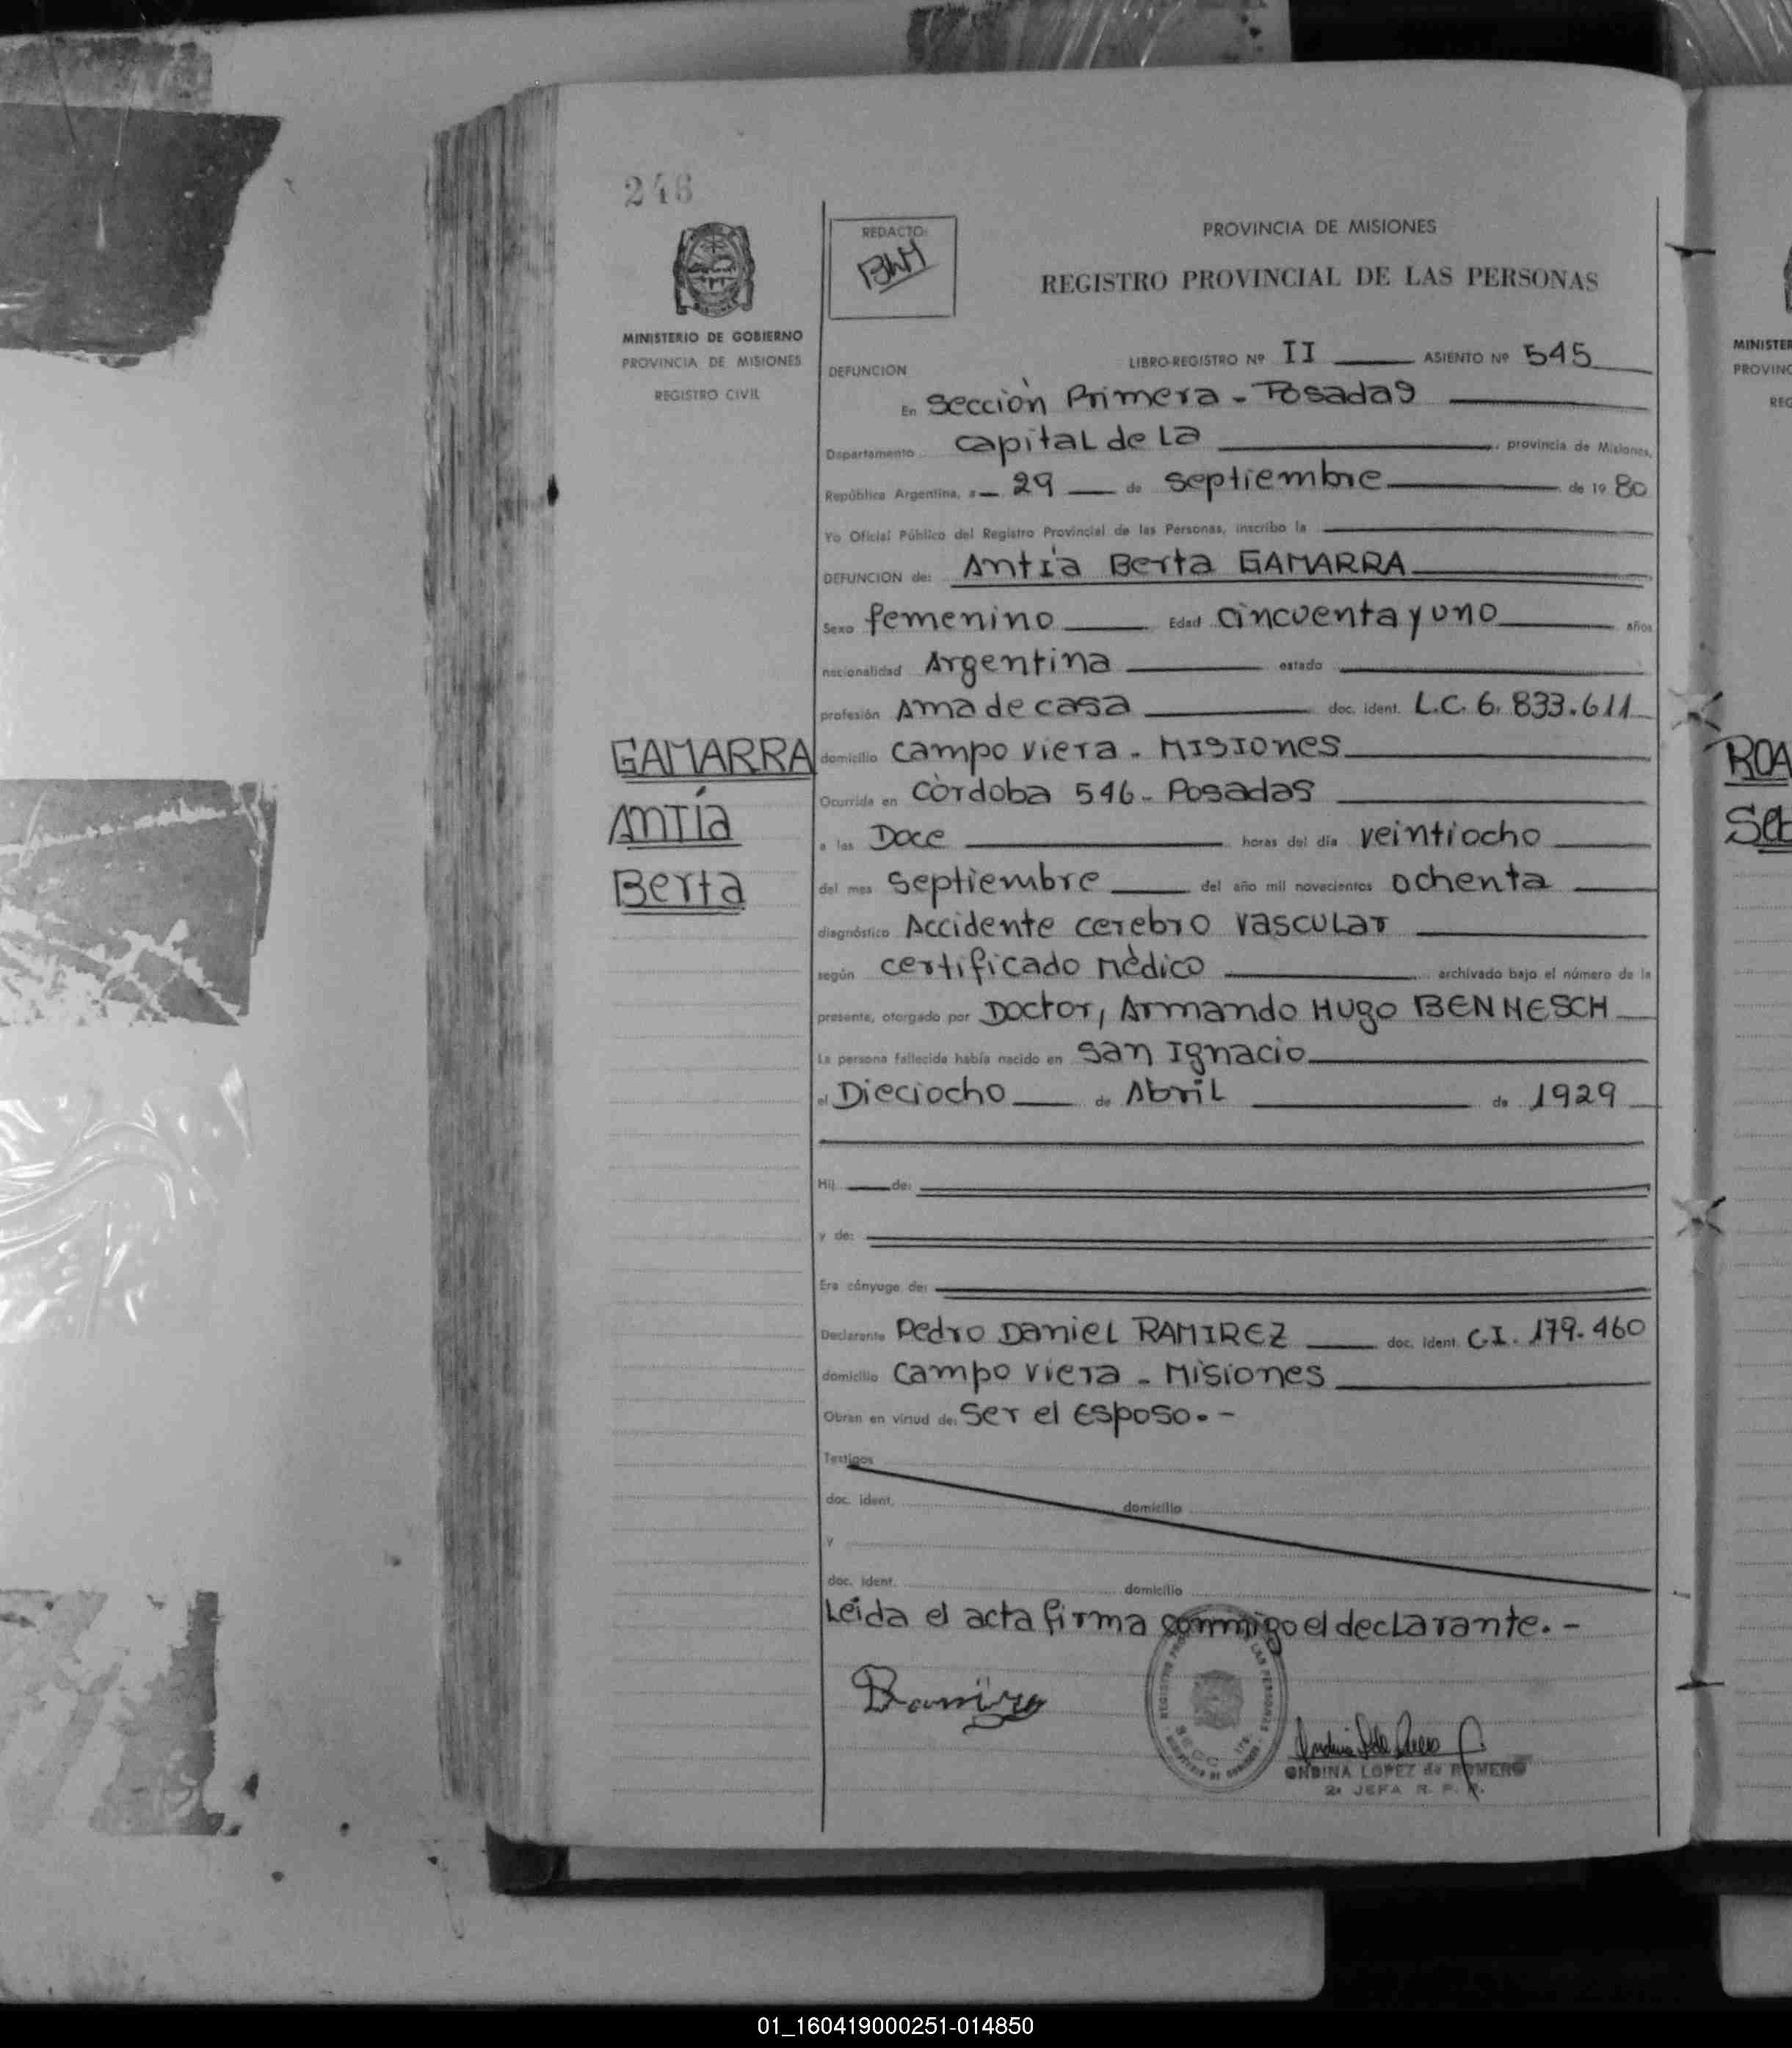 246
MINISTERIO DE GOBIERNO
PROVINCIA DE MISIONES
REGISTRO CIVIL
GAMARRA
Antía
Berta
REDACTO:
PROVINCIA DE MISIONES
REGISTRO PROVINCIAL DE LAS PERSONAS
DEFUNCION
LIBRO-REGISTRO Nº II ASIENTO Nº 545
En Sección Primera - Posadas
Departamento Capital de La, provincia de Misiones,
República Argentina, a 29 de septiembre de 19 80
Yo Oficial Público del Registro Provincial de las Personas, inscribo la
DEFUNCION de: Antía Berta GAMARRA
Sexo femenino Edad cincuenta y uno años
nacionalidad Argentina estado
profesión Ama de casa doc. ident. L.C. 6.833.611
domicilio campo viera - Misiones
Ocurrida en Còrdoba 546 - Posadas
a las Doce horas del día veintiocho
del mes septiembre del año mil novecientos ochenta
diagnóstico Accidente cerebro vascular
según certificado mèdico archivado bajo el número de la
presente, otorgado por Doctor, Armando Hugo BENNESCH
La persona fallecida había nacido en San Ignacio
el Dieciocho de Abril de 1929
Hij de:
y de:
Era cónyuge de:
Declarante Pedro Daniel RAMIREZ doc. ident. C.I. 179.460
domicilio campo viera - Misiones
Obran en virtud de: ser el esposo. -
Testigos
doc. ident. domicilio
y
doc. ident. domicilio
Leída el acta firma conmigo el declarante. -
ONDINA LOPEZ de ROMERO
2ª JEFA R. P. P.
MINISTER
PROVINC
REG
ROA
01_160419000251-014850